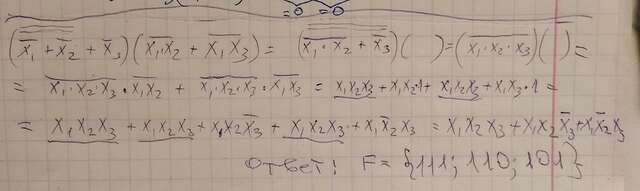 =0 =0
(x̅₁ + x̅₂ + x̅₃)(x̅₁x̅₂ + x̅₁x̅₃) = (x̅₁·x̅₂ + x̅₃)( ) = (x̅₁·x̅₂·x̅₃)( ) =
= x̅₁·x̅₂·x̅₃·x̅₁x̅₂ + x̅₁·x̅₂·x̅₃·x̅₁x̅₃ = x₁x₂x₃ + x₁x₂·1 + x₁x₂x₃ + x₁x₃·1 =
= x₁x₂x₃ + x₁x₂x₃ + x₁x₂x̅₃ + x₁x₂x₃ + x₁x̅₂x₃ = x₁x₂x₃ + x₁x₂x̅₃ + x₁x̅₂x₃
Ответ: F = {111; 110; 101}